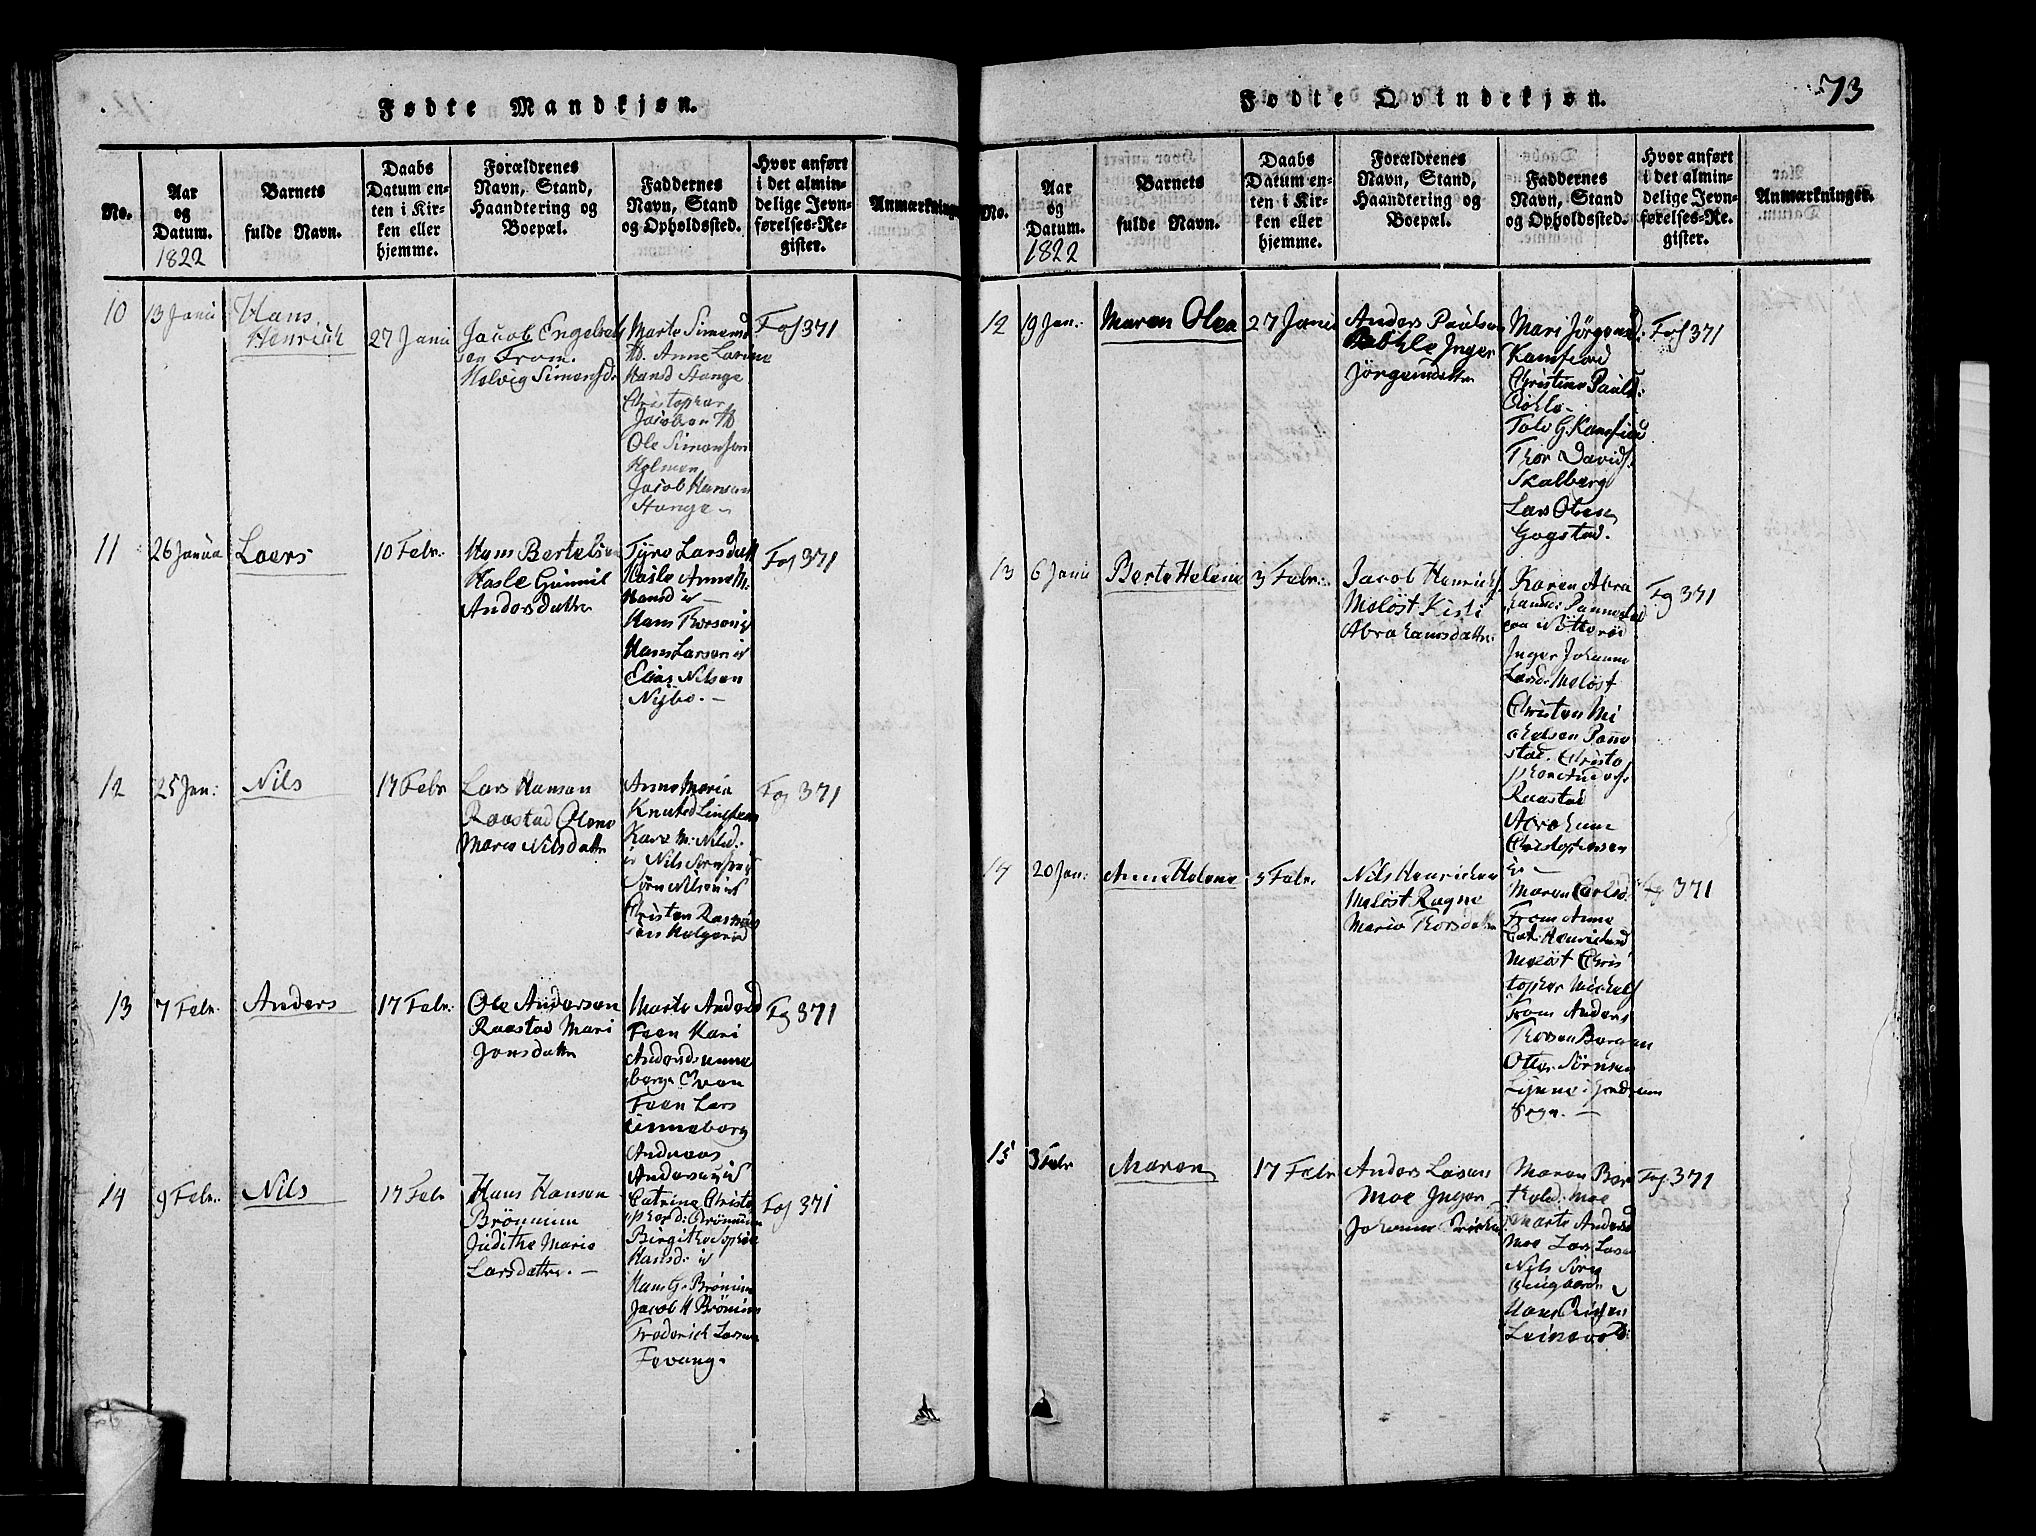 Fødte Mandkjøn.
No.
Aar
og
Datum.
1822
Barnets
fulde Navn.
Daabs
Datum en-
ten i Kir-
ken eller
hjemme.
Forældrenes
Navn, Stand,
Haandtering og
Boepæl.
Faddernes
Navn, Stand
og Opholdssted.
Hvor anført
i det almin-
delige Jevn-
førelses-Re-
gister.
Anmærkning
10
13 Janu
Hans
Henrich
27 Janu
Jacob Engebrets
sen From
Helvig Simensd
Marte Simensd
Anne
Hansd Stange
Christopher
Jacobsen
Ole Simensen
Holmen
Jacob Hansen
Stange
Fol 371
11
26 Janua
Laers
10 Febr.
Hans Bertelsen
Hasle Gunnil
Andersdatter
Larsdatt
Hasle Anne M.
Hansd
Hans
Hans Larsen
Elias Nilsen
Nijbo.
Fol 371
12
25 Jan:
Nils
17 Febr
Lars Hansen
Raastad Olene
Marie Nilsdatter
Anne Maria
Knutsd
Kare M: Nilsd:
Nils
Sørn Nilsen
Christen Rasmus
Fol 371
13
7 Febr.
Anders
17 Febr.
Ole Andersen
Raastad Mari
Jonsdatter
Marte Andersd
Feen Kari
Andersd:
berg
Feen Lars
Unneberg
Andreas
Andersen
Fol 371
14
9 Febr.
Nils
17 Febr
Hans Hansen
Brønnum
Judithe Marie
Larsdatter.
Catrine Christo
Brønnum
Birgithe Sophie
Hansd:
Hans G. Brønnum
Jacob H Brønnum
Frederich Larsen
Fevang.
Fol 371
Fødte Qvindekjøn.
73
No.
Aar
og
Datum.
1822
Barnets
fulde Navn.
Daabs
Datum en-
ten i Kir-
ken eller
hjemme.
Forældrenes
Navn, Stand,
Haandtering og
Boepæl.
Faddernes
Navn, Stand
og Opholdssted.
Hvor anført
i det almin-
delige Jevn-
førelses-Re-
gister.
Anmærkninger.
12
19 Jan:
Maren Olea
27 Janu
Anders Paulsen
Inger
Jørgensdatter
Mari Jørgensd:
Kamfiord
Christine Paulsd:
G. Kamfiord
Thor Davids
Skalberg
Lars Olsen
Gogstad.
Fol 371
13
6 Janu
Berte Helene
3 Febr.
Jacob Henrichs
Meløst Kisti
Abrahamsdatter
Karen Abra
Inger Johanne
Larsd: Meløst
Christen Mi
chelsen Panne
stad. Christo
Raastad
Abraham
Christophersen
Fol 371
14
20 Jan:
Anne Helene
5 Febr.
Nils Henrichsen
Meløst Ragne
Maria Thorsdatter
Maren Carlsd:
From Anne
Cat: Henrichsd
Meløst Chris
topher Michels
From Anders
Thorsen Bergan
Otter Sørnsen
Lijnne i
Sogn.
Fol 371
15
3 Febr
Maren
17 Febr
Anders Larsen
Moe Inger
Johanne
Maren Ber
Moe
Marte Andersd
Moe Lars Larsen
Nils Sørn
Hans
Fol 371